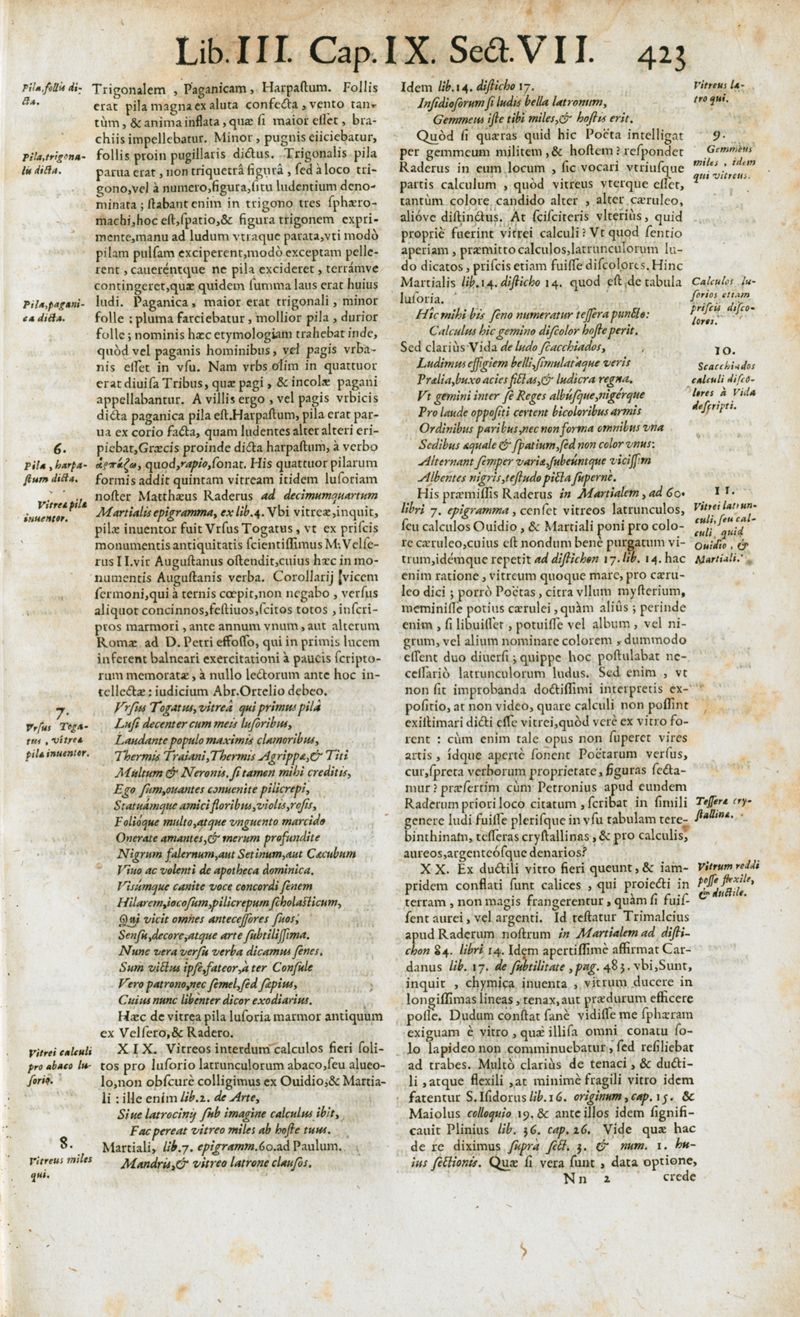 Lib. III. Cap. IX. Sect. VII. 423
Pila, follis di-
cta.
Trigonalem , Paganicam , Harpaſtum. Follis
erat pila magna ex aluta confecta , vento tan-
tùm , & anima inflata , quæ ſi maior eſſet , bra-
chiis impellebatur. Minor , pugnis eiiciebatur,
Pila,trigona-
lis dicta.
follis proin pugillaris dictus. Trigonalis pila
parua erat , non triquetrâ figurâ , ſed à loco tri-
gono,vel à numero,figura,ſitu ludentium deno-
minata ; ſtabant enim in trigono tres ſphæro-
machi,hoc eſt,ſpatio,& figura trigonem expri-
mente,manu ad ludum vtraque parata,vti modò
pilam pulſam exciperent,modò exceptam pelle-
rent , caueréntque ne pila excideret , terrámve
contingeret,quæ quidem ſumma laus erat huius
Pila,pagani-
ca dicta.
ludi. Paganica , maior erat trigonali , minor
folle : pluma farciebatur , mollior pila , durior
folle ; nominis hæc etymologiam trahebat inde,
quòd vel paganis hominibus , vel pagis vrba-
nis eſſet in vſu. Nam vrbs olim in quattuor
erat diuiſa Tribus, quæ pagi , & incolæ pagani
appellabantur. A villis ergo , vel pagis vrbicis
dicta paganica pila eſt.Harpaſtum, pila erat par-
ua ex corio facta, quam ludentes alter alteri eri-
6.
Pila , harpa-
ſtum dicta.
piebat,Græcis proinde dicta harpaſtum, à verbo
ἁρπάζω, quod,rapio,ſonat. His quattuor pilarum
formis addit quintam vitream itidem luſoriam
noſter Matthæus Raderus ad decimumquartum
Vitreæ pilæ
inuentor.
Martialis epigramma, ex lib.4. Vbi vitreæ,inquit,
pilæ inuentor fuit Vrſus Togatus , vt ex priſcis
monumentis antiquitatis ſcientiſſimus M: Velſe-
rus II.vir Auguſtanus oſtendit,cuius hæc in mo-
numentis Auguſtanis verba. Corollarij vicem
ſermoni,qui à ternis cœpit,non negabo , verſus
aliquot concinnos,feſtiuos,ſcitos totos , inſcri-
ptos marmori , ante annum vnum , aut alterum
Romæ ad D. Petri effoſſo, qui in primis lucem
inferent balneari exercitationi à paucis ſcripto-
rum memoratæ , à nullo lectorum ante hoc in-
tellectæ : iudicium Abr.Ortelio debeo.
7.
Vrſus Toga-
tus , vitreæ
pilæ inuentor.
Vrſus Togatus, vitreâ qui primus pilâ
Luſi decenter cum meis luſoribus,
Laudante populo maximis clamoribus,
Thermis Traiani,Thermis Agrippæ,& Titi
Multum & Neronis, ſi tamen mihi creditis,
Ego ſum,ouantes conuenite pilicrepi,
Statuámque amici floribus,violis,roſis,
Folióque multo,atque vnguento marcido
Onerate amantes,& merum profundite
Nigrum falernum,aut Setinum,aut Cæcubum
Viuo ac volenti de apotheca dominica.
Visúmque canite voce concordi ſenem
Hilarem,iocoſum,pilicrepum ſcholaſticum,
Qui vicit omnes anteceſſores ſuos,
Senſu,decore,atque arte ſubtiliſſima.
Nunc vera verſu verba dicamus ſenes.
Sum victus ipſe,fateor,à ter Conſule
Vero patrono,nec ſemel,ſed ſæpius,
Cuius nunc libenter dicor exodiarius.
Hæc de vitrea pila luſoria marmor antiquum
ex Velſero,& Radero.
Vitrei calculi
pro abaco lu-
ſorio.
XIX. Vitreos interdum calculos fieri ſoli-
tos pro luſorio latrunculorum abaco,ſeu alueo-
lo,non obſcurè colligimus ex Ouidio,& Martia-
li : ille enim lib.2. de Arte,
Siue latrocinij ſub imagine calculus ibit,
Fac pereat vitreo miles ab hoſte tuus.
8.
Vitreus miles
qui.
Martiali, lib.7. epigramm.60.ad Paulum.
Mandris,& vitreo latrone clauſos.
Idem lib.14. diſticho 17.
Vitreus la-
tro qui.
Inſidioſorum ſi ludis bella latronum,
Gemmeus iſte tibi miles,& hoſtis erit.
Quòd ſi quæras quid hic Poëta intelligat
9.
Gemmeus
miles , idem
qui vitreus.
per gemmeum militem , & hoſtem ? reſpondet
Raderus in eum locum , ſic vocari vtriuſque
partis calculum , quòd vitreus vterque eſſet,
tantùm colore candido alter , alter cæruleo,
alióve diſtinctus. At ſciſciteris vlteriùs , quid
propriè fuerint vitrei calculi ? Vt quod ſentio
aperiam , præmitto calculos,latrunculorum lu-
do dicatos , priſcis etiam fuiſſe diſcolores. Hinc
Calculos lu-
ſorios etiam
priſcis diſco-
lores.
Martialis lib.14. diſticho 14. quod eſt de tabula
luſoria.
Hîc mihi bis ſeno numeratur teſſera puncto:
Calculus hic gemino diſcolor hoſte perit.
10.
Scacchiados
calculi diſco-
lores à Vida
deſcripti.
Sed clariùs Vida de ludo ſcacchiados,
Ludimus effigiem belli,ſimulatáque veris
Prælia,buxo acies fictas,& ludicra regna.
Vt gemini inter ſe Reges albúſque,nigérque
Pro laude oppoſiti certent bicoloribus armis
Ordinibus paribus,nec non forma omnibus vna
Sedibus æquale & ſpatium,ſed non color vnus:
Alternant ſemper varia,ſubeúntque viciſſim
Albentes nigris,teſtudo picta ſupernè.
11.
Vitrei latrun-
culi, ſeu cal-
culi , quid
Ouidio , &
Martiali.
His præmiſſis Raderus in Martialem , ad 60.
libri 7. epigramma , cenſet vitreos latrunculos,
ſeu calculos Ouidio , & Martiali poni pro colo-
re cæruleo,cuius eſt nondum benè purgatum vi-
trum,idémque repetit ad diſtichon 17. lib. 14. hac
enim ratione , vitreum quoque mare, pro cæru-
leo dici ; porrò Poëtas , citra vllum myſterium,
meminiſſe potius cærulei , quàm aliûs ; perinde
enim , ſi libuiſſet , potuiſſe vel album , vel ni-
grum, vel alium nominare colorem , dummodo
eſſent duo diuerſi ; quippe hoc poſtulabat ne-
ceſſariò latrunculorum ludus. Sed enim , vt
non ſit improbanda doctiſſimi interpretis ex-
poſitio, at non video, quare calculi non poſſint
exiſtimari dicti eſſe vitrei,quòd verè ex vitro fo-
rent : cùm enim tale opus non ſuperet vires
artis , idque apertè ſonent Poëtarum verſus,
cur,ſpreta verborum proprietate, figuras ſecta-
mur ? præſertim cùm Petronius apud eundem
Teſſeræ cry-
ſtallinæ.
Raderum priori loco citatum , ſcribat in ſimili
genere ludi fuiſſe pleriſque in vſu tabulam tere-
binthinam, teſſeras cryſtallinas , & pro calculis,
aureos,argenteóſque denarios?
Vitrum reddi
poſſe flexile,
& ductile.
XX. Ex ductili vitro fieri queunt, & iam-
pridem conflati ſunt calices , qui proiecti in
terram , non magis frangerentur , quàm ſi fuiſ-
ſent aurei , vel argenti. Id teſtatur Trimalcius
apud Raderum noſtrum in Martialem ad diſti-
chon 84. libri 14. Idem apertiſſimè affirmat Car-
danus lib. 17. de ſubtilitate , pag. 483. vbi,Sunt,
inquit , chymica inuenta , vitrum ducere in
longiſſimas lineas , tenax,aut prædurum efficere
poſſe. Dudum conſtat ſanè vidiſſe me ſphæram
exiguam è vitro , quæ illiſa omni conatu ſo-
lo lapideo non comminuebatur , ſed reſiliebat
ad trabes. Multò clariùs de tenaci , & ducti-
li , atque flexili , at minimè fragili vitro idem
fatentur S. Iſidorus lib.16. originum , cap. 15. &
Maiolus colloquio 19. & ante illos idem ſignifi-
cauit Plinius lib. 36. cap. 26. Vide quæ hac
de re diximus ſupra ſect. 3. & num. 1. hu-
ius ſectionis. Quæ ſi vera ſunt , data optione,
Nn 2 crede